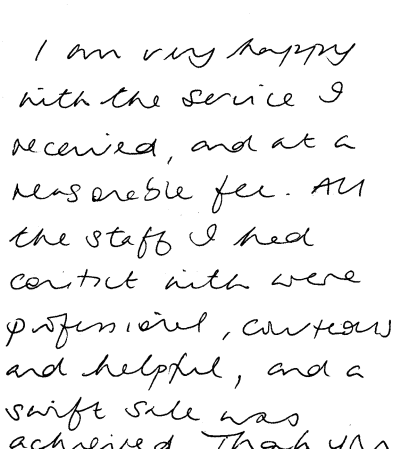 I am very happy
with the service I
received, and at a
reasonable fee. All
the staff I had
contact with were
professional, courteous
and helpful, and a
swift sale was
achieved. Thank you